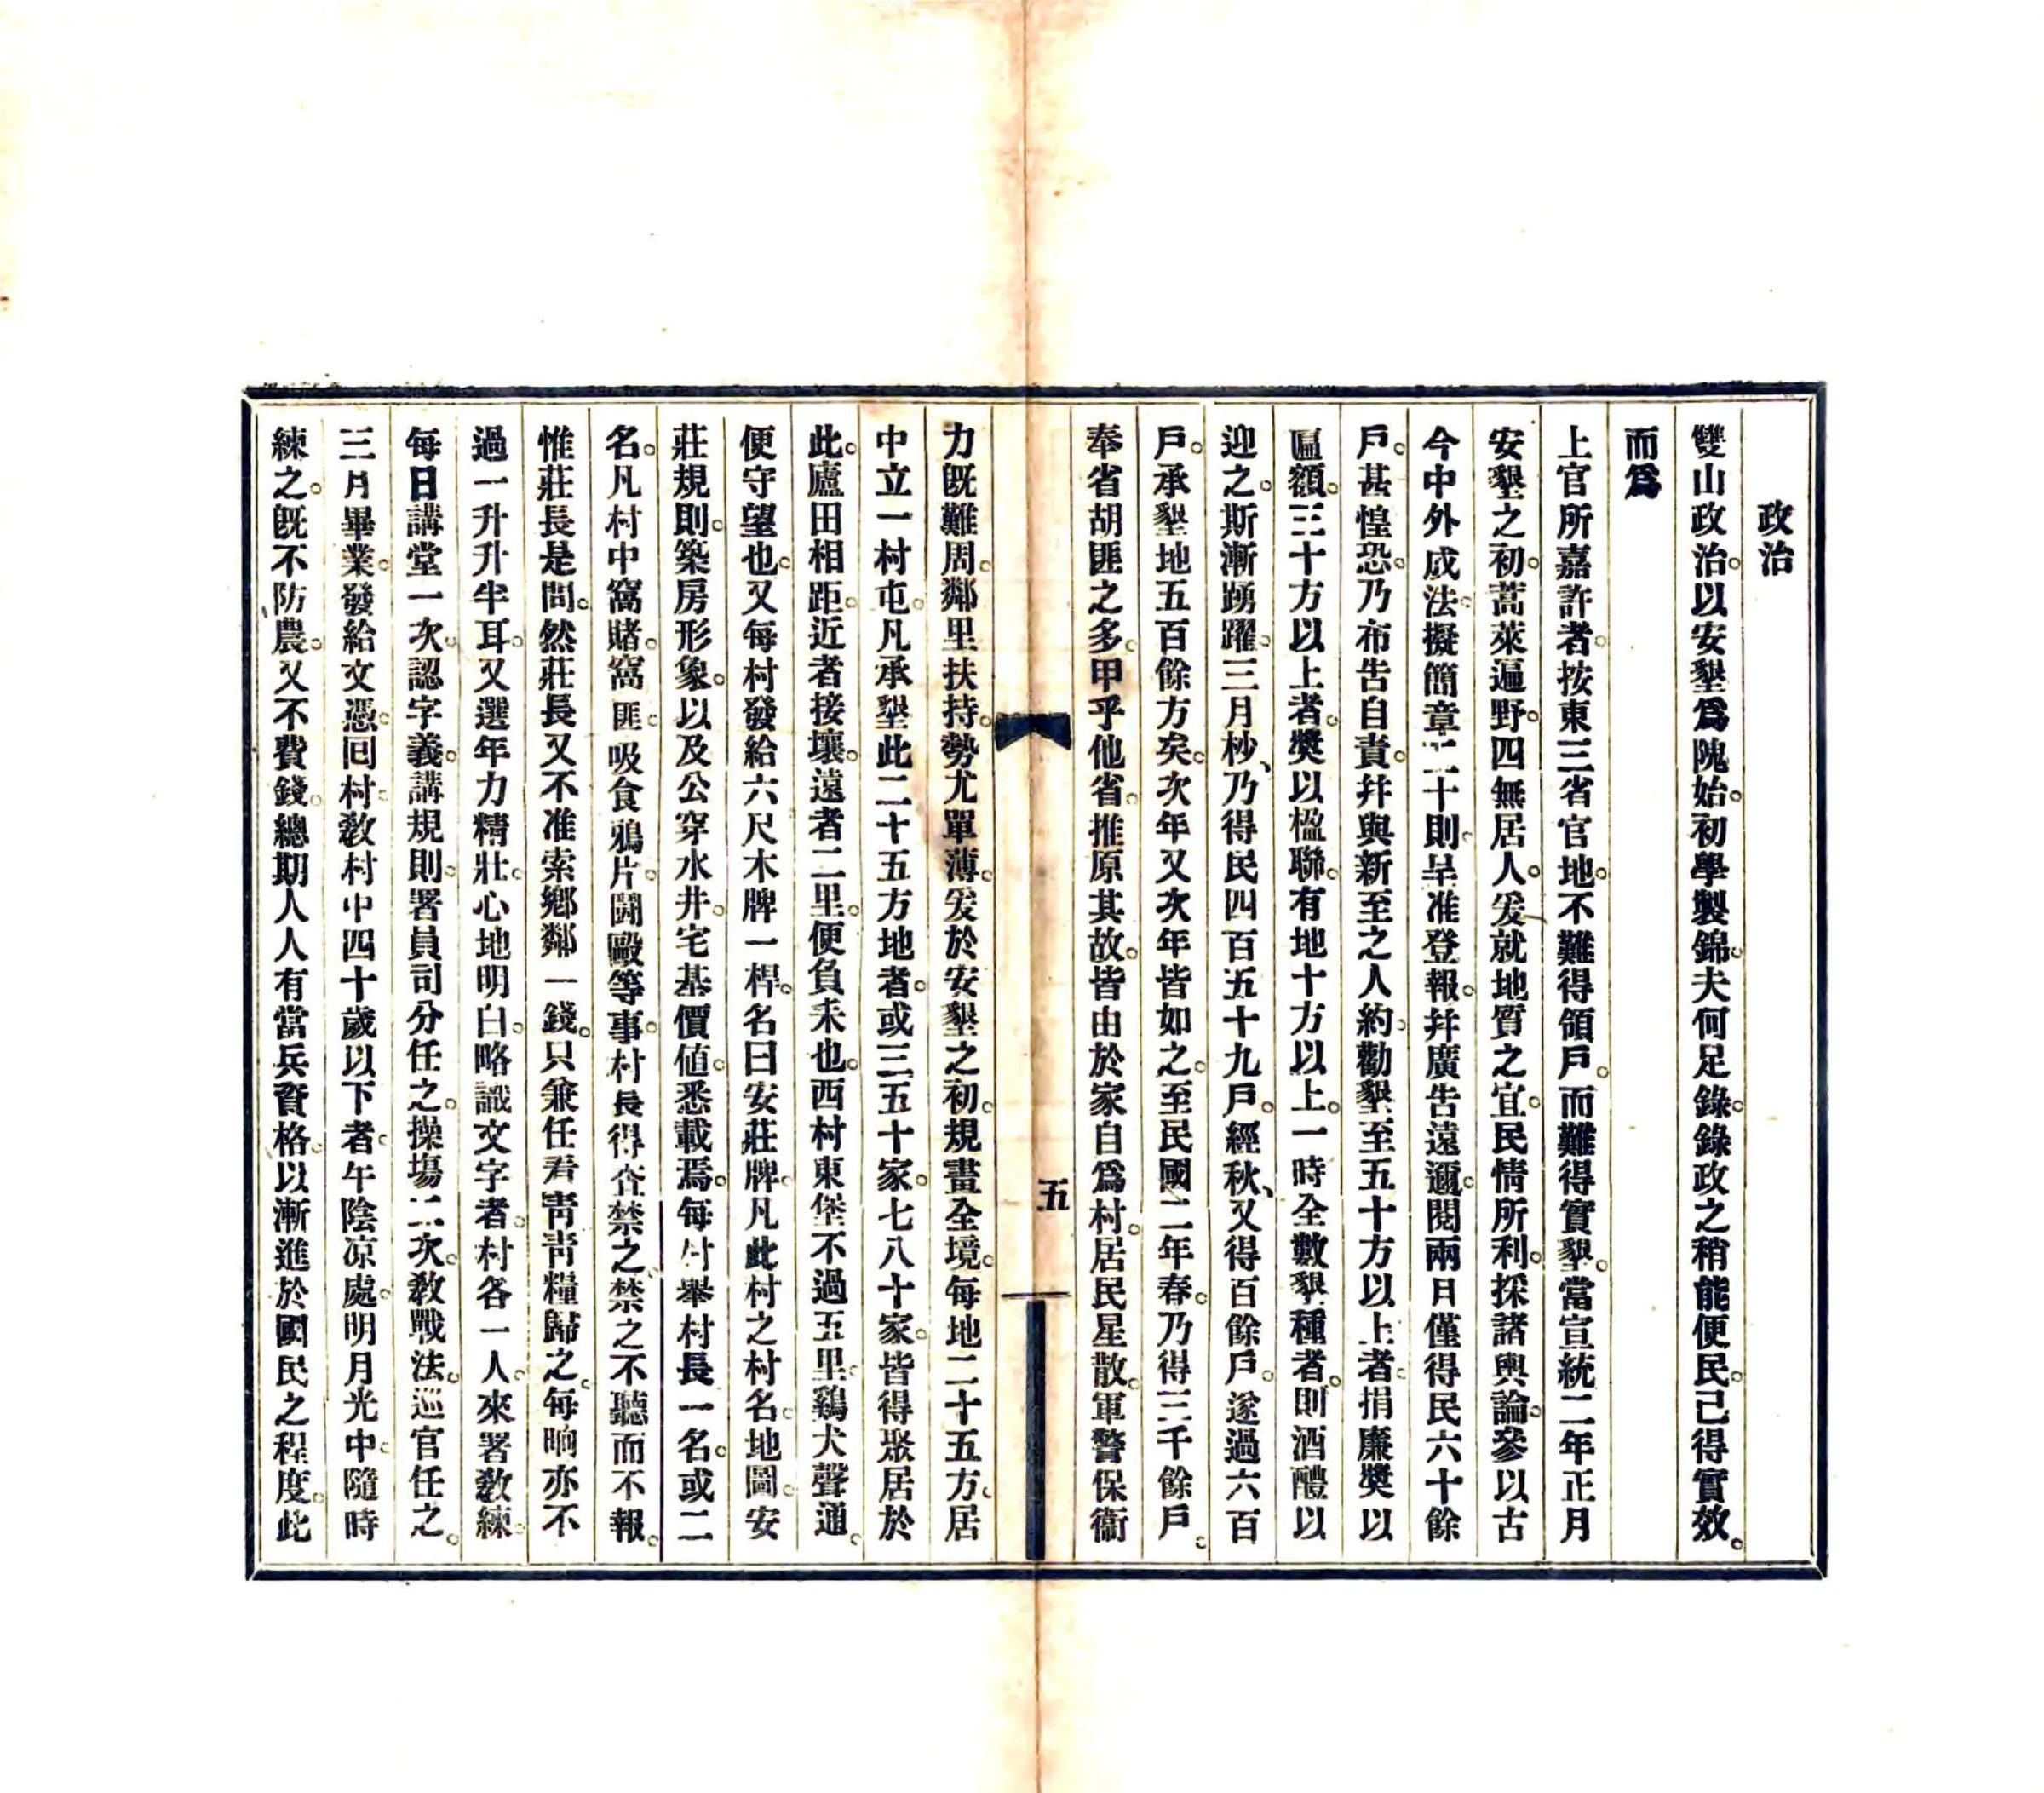 政治
雙山政治。以安墾爲隗始。初學製錦。夫何足錄。錄政之稍能便民。己得實效。
而爲
上官所嘉許者。按東三省官地。不難得領戶。而難得實墾。當宣統二年正月
安墾之初。蒿萊遍野。四無居人。爰就地質之宜。民情所利。採諸輿論。參以古
今中外成法。擬簡章二十則。呈准登報。幷廣告遠邇。閱兩月僅得民六十餘
戶。甚惶恐。乃布告自責。幷與新至之人約。勸墾至五十方以上者。捐廉獎以
匾額。三十方以上者。獎以楹聯。有地十方以上。一時全數墾種者。則酒醴以
迎之。斯漸踴躍。三月杪、乃得民四百五十九戶。經秋、又得百餘戶。遂過六百
戶。承墾地五百餘方矣。次年又次年皆如之。至民國二年春。乃得三千餘戶。
奉省胡匪之多。甲乎他省。推原其故。皆由於家自爲村。居民星散。軍警保衞
五
力既難周。鄰里扶持。勢尤單薄。爰於安墾之初。規畫全境。每地二十五方。居
中立一村屯。凡承墾此二十五方地者。或三五十家。七八十家。皆得聚居於
此。廬田相距。近者接壤。遠者二里。便負耒也。西村東堡不過五里。鷄犬聲通。
便守望也。又每村發給六尺木牌一桿。名曰安莊牌。凡此村之村名。地圖。安
莊規則。築房形象。以及公穿水井。宅基價値。悉載焉。每村舉村長一名。或二
名。凡村中窩賭。窩匪。吸食鴉片。鬪毆等事。村長得查禁之。禁之不聽而不報。
惟莊長是問。然莊長又不准索鄉鄰一錢。只兼任看靑。靑糧歸之。每晌亦不
過一升升半耳。又選年力精壯。心地明白。略識文字者。村各一人。來署敎練。
每日講堂一次。認字義。講規則。署員司分任之。操塲二次。敎戰法。巡官任之。
三月畢業。發給文憑。囘村。敎村中四十歲以下者。午陰凉處。明月光中。隨時
練之。既不防農。又不費錢。總期人人有當兵資格。以漸進於國民之程度。此